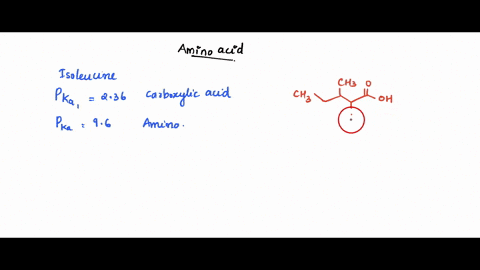 Amino acid
Isoleucine
PKa1 = 2.36 carboxylic acid
PKa = 9.6 Amino.
CH3
O
CH3
OH